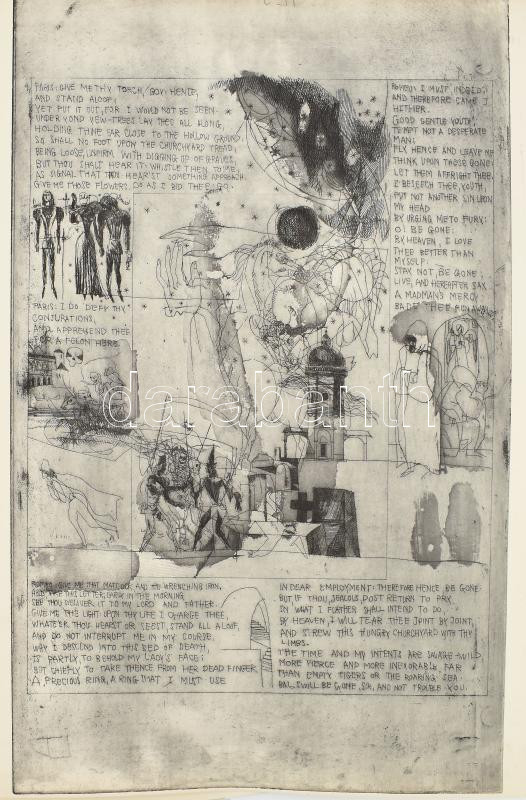 PARIS: GIVE ME THY TORCH, BOY: HENCE,
AND STAND ALOOF;
YET PUT IT OUT, FOR I WOULD NOT BE SEEN.
UNDER YOND YEW-TREES LAY THEE ALL ALONG,
HOLDING THINE EAR CLOSE TO THE HOLLOW GROUND;
SO SHALL NO FOOT UPON THE CHURCHYARD TREAD,
BEING LOOSE, UNFIRM, WITH DIGGING UP OF GRAVES,
BUT THOU SHALT HEAR IT: WHISTLE THEN TO ME,
AS SIGNAL THAT THOU HEAR'ST SOMETHING APPROACH.
GIVE ME THOSE FLOWERS. DO AS I BID THEE, GO.
PARIS: I DO DEFY THY
CONJURATIONS,
AND APPREHEND THEE
FOR A FELON HERE.
ROMEO: I MUST INDEED;
AND THEREFORE CAME I
HITHER.
GOOD GENTLE YOUTH,
TEMPT NOT A DESPERATE
MAN;
FLY HENCE AND LEAVE ME
THINK UPON THOSE GONE
LET THEM AFFRIGHT THEE.
I BESEECH THEE, YOUTH,
PUT NOT ANOTHER SIN UPON
MY HEAD
BY URGING ME TO FURY:
O! BE GONE:
BY HEAVEN, I LOVE
THEE BETTER THAN
MYSELF.
STAY NOT, BE GONE;
LIVE, AND HEREAFTER SAY,
A MADMAN'S MERCY
BADE THEE RUN AWAY
darabanth
ROMEO: GIVE ME THAT MATTOCK, AND THE WRENCHING IRON.
HOLD, TAKE THIS LETTER; EARLY IN THE MORNING
SEE THOU DELIVER IT TO MY LORD AND FATHER.
GIVE ME THE LIGHT: UPON THY LIFE I CHARGE THEE,
WHATE'ER THOU HEAREST OR SEEST, STAND ALL ALOOF,
AND DO NOT INTERRUPT ME IN MY COURSE.
WHY I DESCEND INTO THIS BED OF DEATH,
IS PARTLY, TO BEHOLD MY LADY'S FACE;
BUT CHIEFLY TO TAKE THENCE FROM HER DEAD FINGER
A PRECIOUS RING, A RING THAT I MUST USE
IN DEAR EMPLOYMENT: THEREFORE HENCE, BE GONE:
BUT IF THOU, JEALOUS, DOST RETURN TO PRY
IN WHAT I FURTHER SHALL INTEND TO DO,
BY HEAVEN, I WILL TEAR THEE JOINT BY JOINT,
AND STREW THIS HUNGRY CHURCHYARD WITH THY
LIMBS.
THE TIME AND MY INTENTS ARE SAVAGE-WILD,
MORE FIERCE AND MORE INEXORABLE FAR
THAN EMPTY TIGERS OR THE ROARING SEA.
BAL. I WILL BE GONE, SIR, AND NOT TROUBLE YOU.